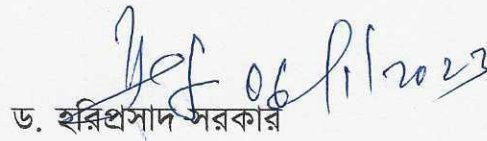 06/11/2023
ড. হরিপ্রসাদ সরকার